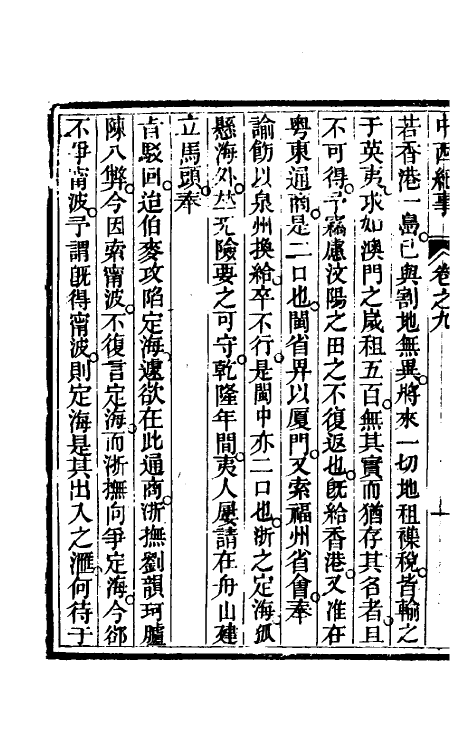 中西紀事 卷之九 十
若香港一島已與割地無異將來一切地租襍稅皆輸之
于英夷求如澳門之歲租五百無其實而猶存其名者且
不可得予竊慮汶陽之田之不復返也旣給香港又准在
粤東通商是二口也閩省畀以厦門又索福州省會奉
諭飭以泉州換給卒不行是閩中亦二口也浙之定海孤
懸海外並无險要之可守乾隆年間夷人屢請在舟山建
立馬頭奉
旨駁回迨伯麥攻陷定海遽欲在此通商浙撫劉韻珂臚
陳八弊今因索甯波不復言定海而浙撫向爭定海今卻
不爭甯波予謂旣得甯波則定海是其出入之滙何待于